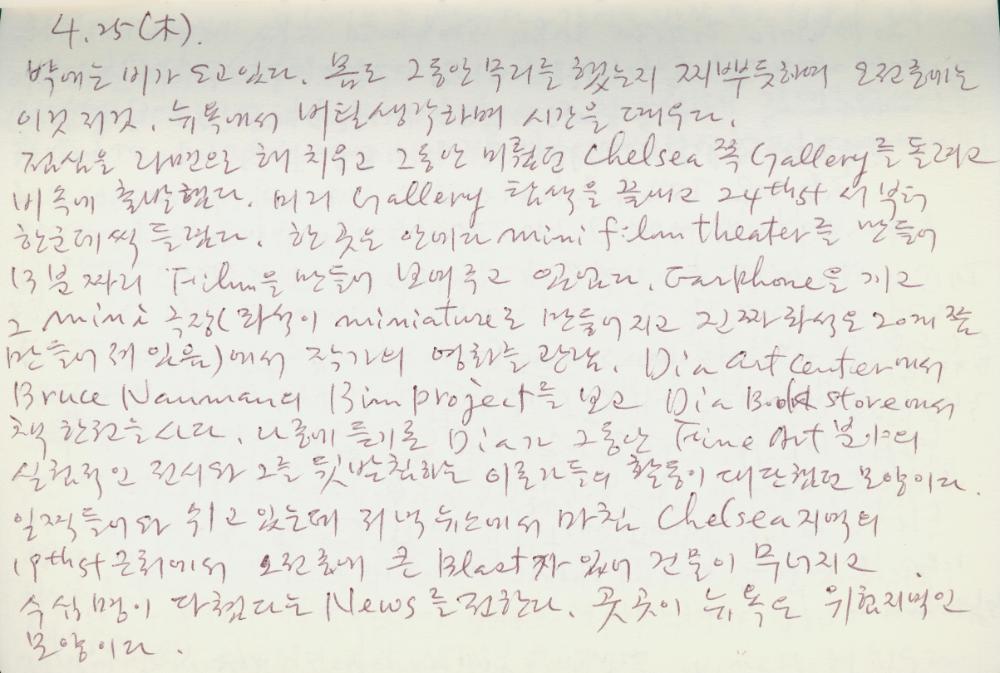 4.25(木).
밖에는 비가 오고있다. 몸도 그동안 무리를 했는지 찌뿌듯하며 오전중에는
이것 저것, 뉴욕에서 버틸생각하며 시간을 때우다.
점심을 라면으로 해 치우고 그동안 미뤘던 Chelsea 쪽 Gallery를 돌려고
비속에 출발했다. 미리 Gallery 탐색을 끝내고 24thst 서부터
한군데씩 들렸다. 한 곳은 안에다 mini film theater를 만들어
13분 짜리 Film을 만들어 보여주고 있었다. Earphone을 끼고
그 mini 극장(좌석이 miniature로 만들어지고 진짜 좌석은 20개쯤
만들어져 있음)에서 작가의 영화를 관람. Dia art center에서
Bruce Nauman의 project를 보고 Dia Book store에서
책 한권을 사다. 나중에 듣기로 Dia가 그동안 Fine Art 분야의
실험적인 전시와 그를 뒷받침하는 이론가들의 활동이 대단했던 모양이다.
일찍들어와 쉬고 있는데 저녁 뉴스에서 마침 Chelsea지역의
19thst 근처에서 오전중에 큰 Blast가 있어 건물이 무너지고
수십명이 다쳤다는 News를전한다. 곳곳이 뉴욕은 위험지역인
모양이다.